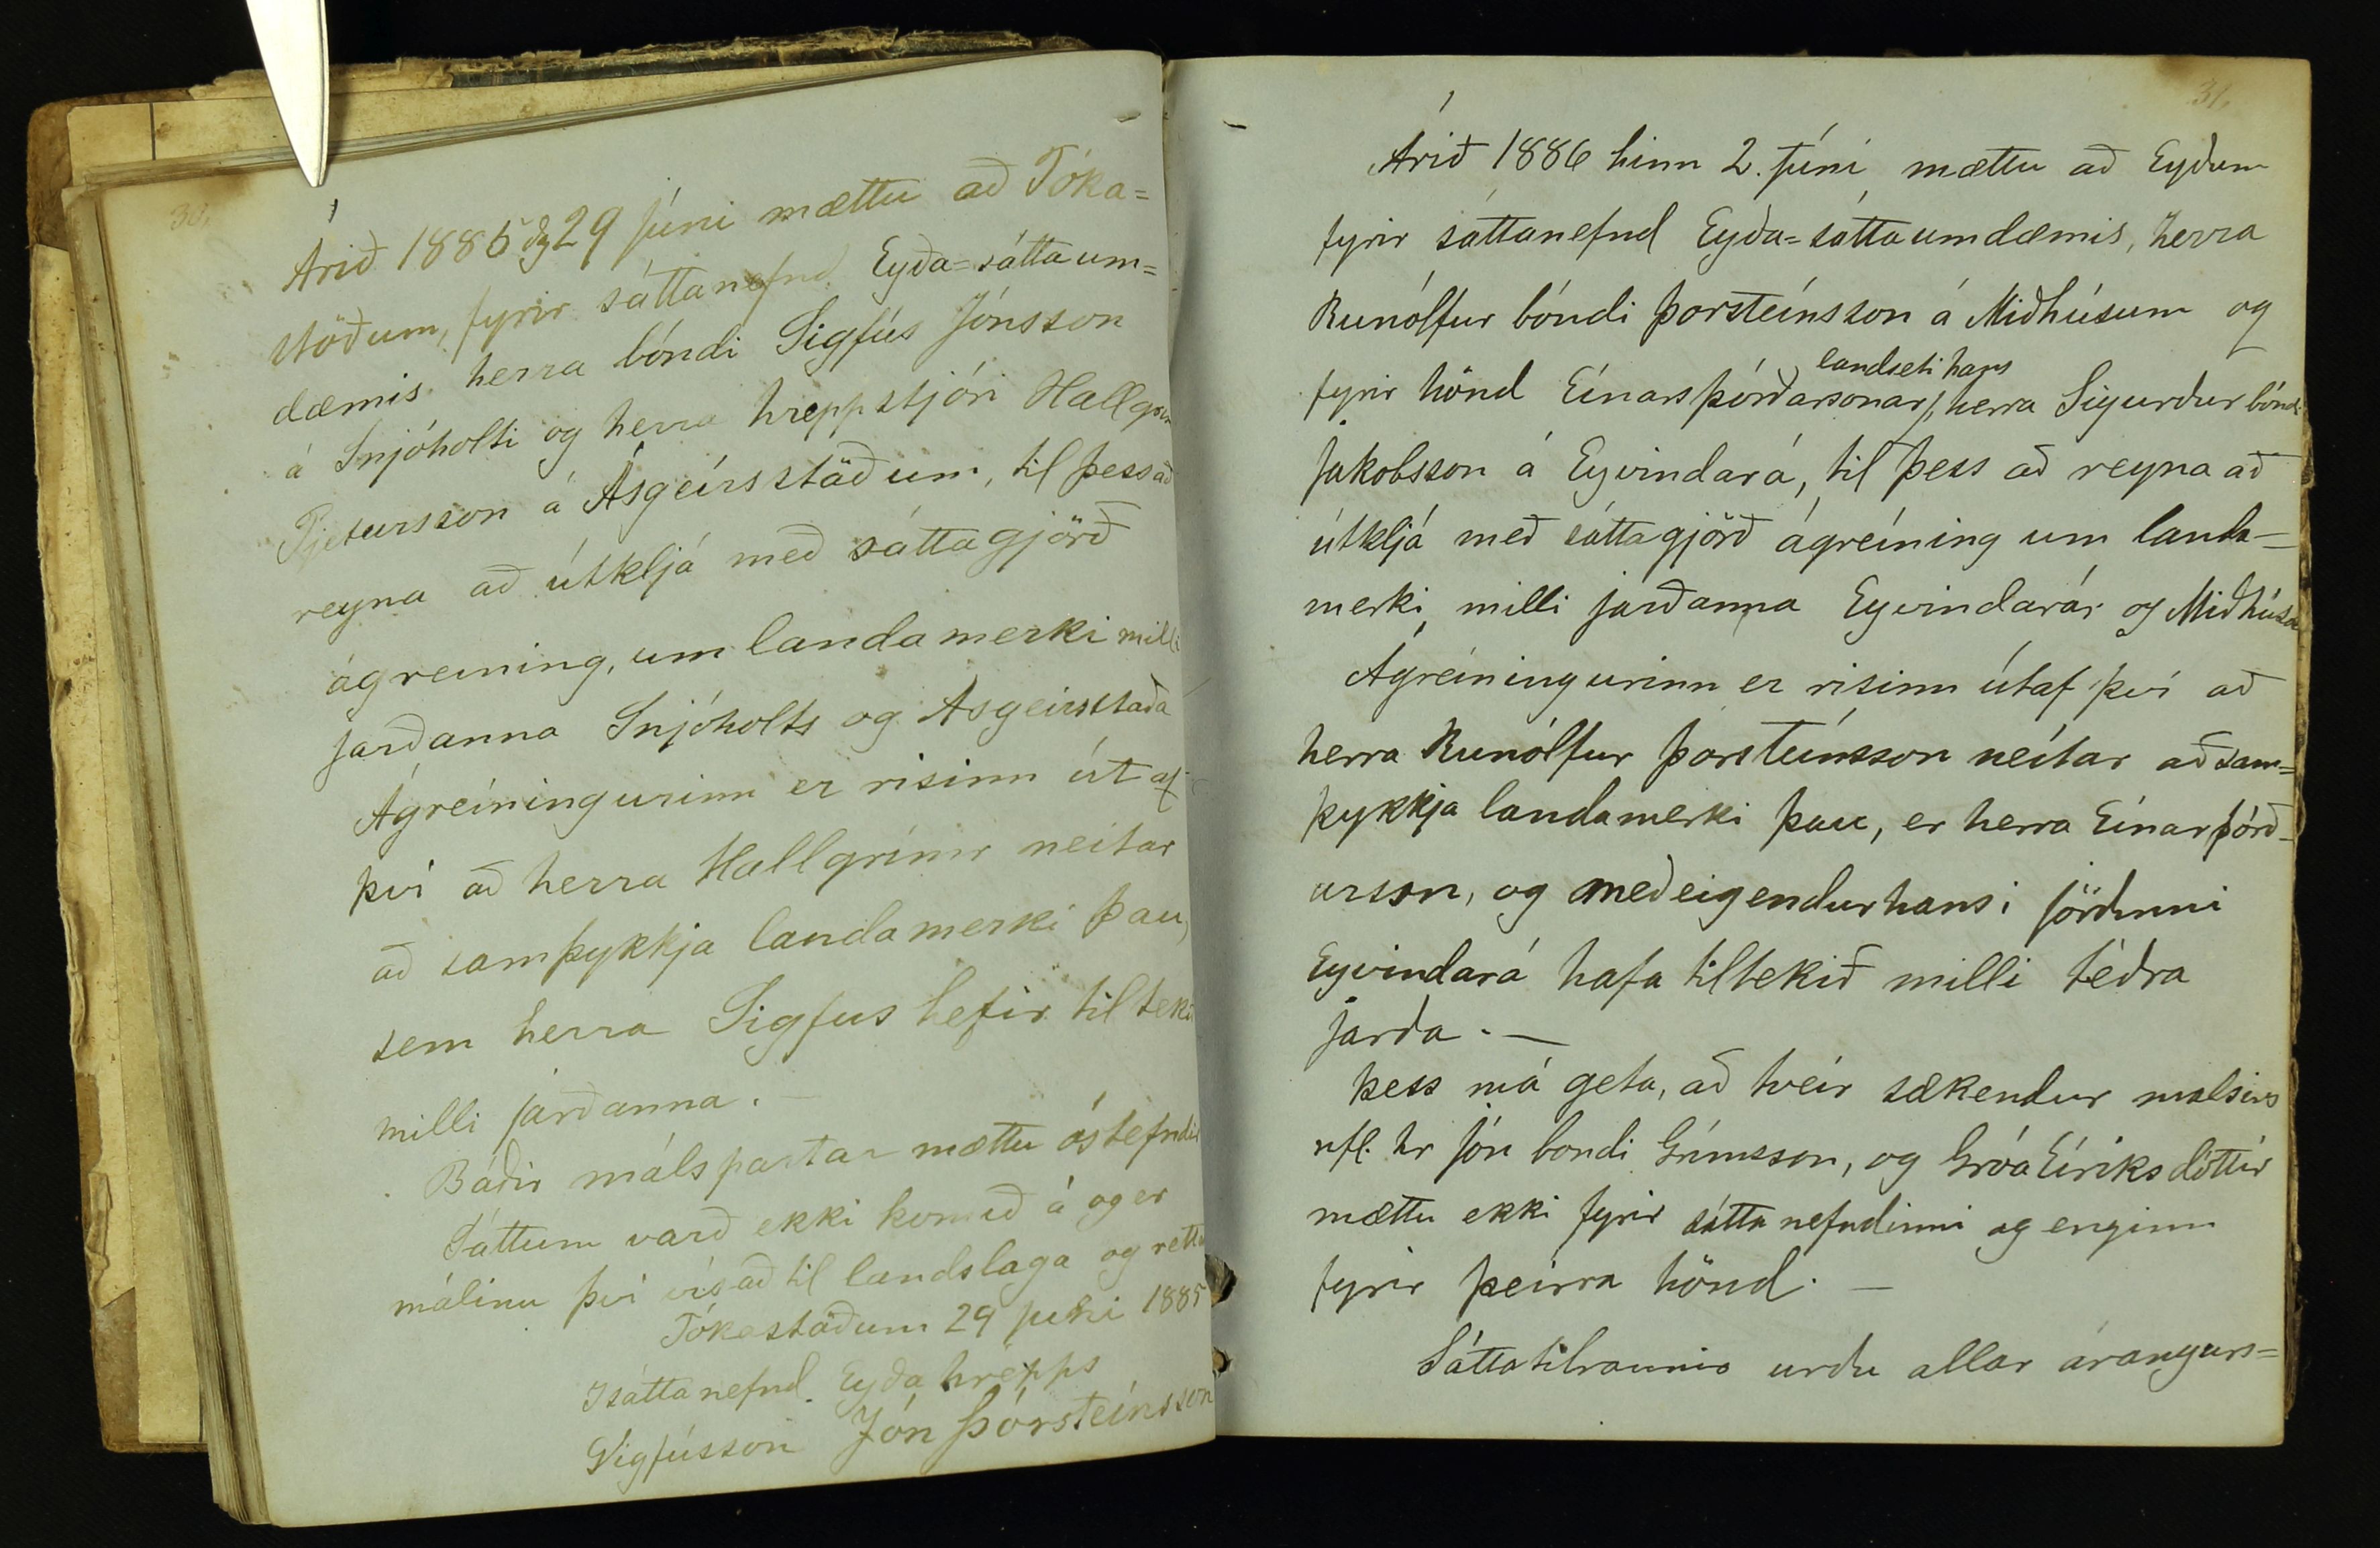 30.
Árið 1885 dg 29 júni mættu að Tóka=
stöðum, fyrir sáttanefnd Eyða=sáttaum=
dæmis herra bóndi Sigfús Jónsson
á Snjóholti og herra hreppstjóri Hallgrím
Pjetursson á Ásgeirsstöðum, til þess að
reyna að útkljá með sáttagjörð
ágreining, um landamerki milli
jarðanna Snjóholts og Asgeirsstaða
Ágreíningurinn er risinn út af
því að herra Hallgrímr neitar
að samþykkja landamerki þau,
sem herra Sigfus hefir tilteki
milli jarðanna. –
Báðir málspartar mættu óstefndir
Sáttum varð ekki komið á og er
málinu því vísað til landslaga og rétta
Tókastöðum 29 juni 1885
I sáttanefnd Eyða hrepps
GVigfússon Jón Þórsteínsson
31.
Árið 1886 hinn 2. Júni mættu að Eyðum
fyrir sáttanefnd Eyða=sáttaumdæmis, herra
Runólfur bóndi Þorsteínsson á Miðhúsum og
landseti hans
fyrir hönd Eínars Þórðarsonar, herra Sigurður bóndi
Jakobsson á Eyvindará, til þess að reyna að
útkljá með sáttagjörð ágreíning um landa-
merki milli jarðanna Eyvindarár og Miðhúsa
Ágreíningurinn er risinn útaf því að
herra Runólfur Þorsteínsson neítar að sam=
þykkja landamerki þau, er herra Eínar Þórð-
arson, og meðeigendur hans i jörðunni
Eyvindará hafa tiltekið milli téðra
jarða. –
Þess má geta, að tveír sækendur malsins
nfl. hr Jón bondi Grímsson, og Gróa Eíriksdóttir
mættu ekki fyrir sáttanefndinni og enginn
fyrir þeirra hönd. –
Sáttatilraunir urðu allar árangurs=